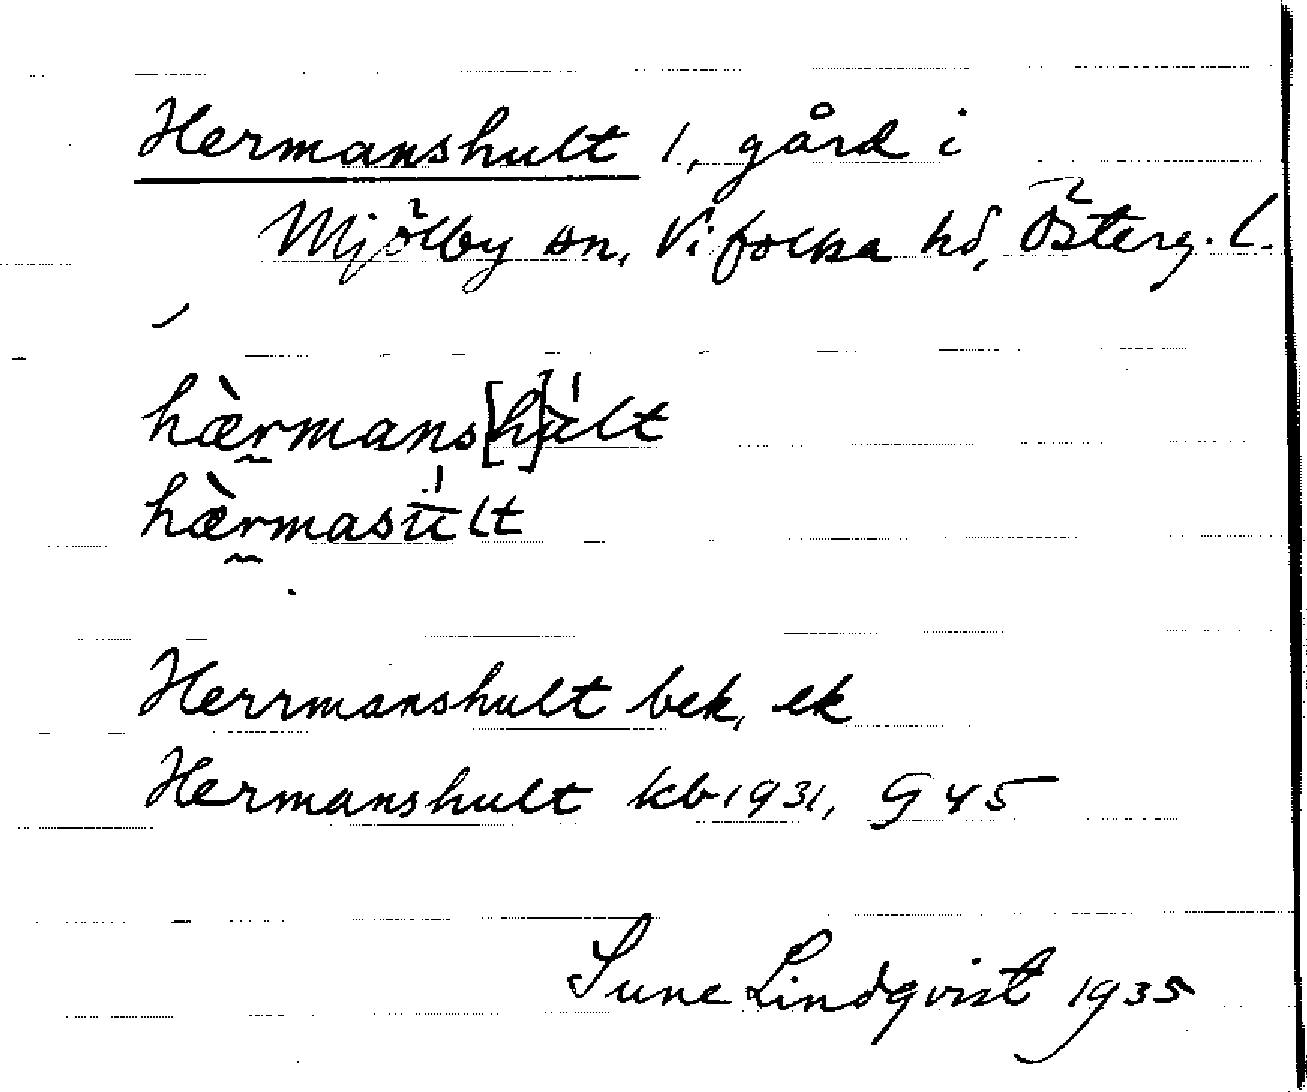 Hermanshult 1, gård i
Mjölby sn, Vifolka hd, Österg. l.
hæ̀rmans[h]últ
hæ̀rmasúlt
Herrmanshult bek, ek
Hermanshult kb 1931, G 45
Sune Lindqvist 1935